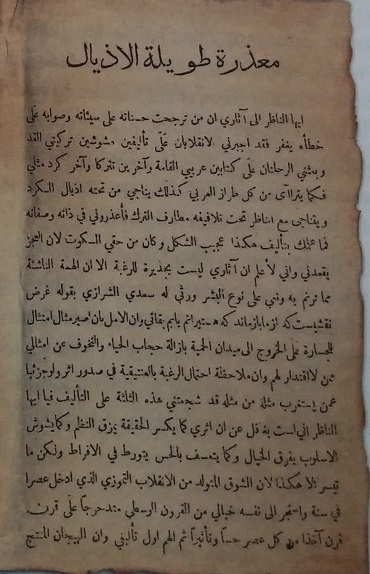 معذرة طويلة الاذيال
ايها الناظر الى آثاري ان من ترجحت حسناته على سيئاته وصوابه على
خطأه يغفر فقد اجبرني الانقلابان على تأليفين مشوشين تركيتي القد
على كتابين عربيي القامة وآخرين تتركا وآخر كرد مثلي
من كل طراز العربي كذلك يناجي من تحته اذيال الكرد
ويتناجى مع الناظر تحت تلافيفه مطارف الترك فأعذروني في ذاته وصفاته
بتأليف هكذا عجيب الشكل وكان من حقي السكوت لان العجز
يقعدني واني لا علم ان آثاري ليست بجديرة للرغبة الا ان الهمة الناشئة
مما ترنم به ونبي على نوع البشر ورثى له سعدي الشرازي بقوله غرض
نقشيست كه ازما بازماند كه هستيرانمي بينم بقائي وان الامل بان اصير مثال امتثال
للجسارة على الخروج الى ميدان الحمية بازالة حجاب الحياء والتخوف عن امثالي
ممن لااقتدار لهم وان ملاحظة احتمال الرغبة بالعتيقية في صدور اثر ولوجزئيا
عمن يستغرب مثله من مثله قد شجعتني هذه الثلثة على التأليف فيا ايها
الناظر اني لست بغافل عن ان اثري كما يكسر الحقيقة يمزق النظم وكما يشوش
الاسلوب يفرق الخيال وكما يتعسف بالحس يتورط في الافراط ولكن ما
تيسر الا هكذا لان الشوق المتولد من الانقلاب التموزي الذي ادخل عصرا
في سنة واستجر الى نفسه خيالي من القرون الوسطى متدحرجا على قرن
قرن آخذا من كل عصر حسا وتأثيرا ثم الهم اول تأليفي وان الهيجان المنتج